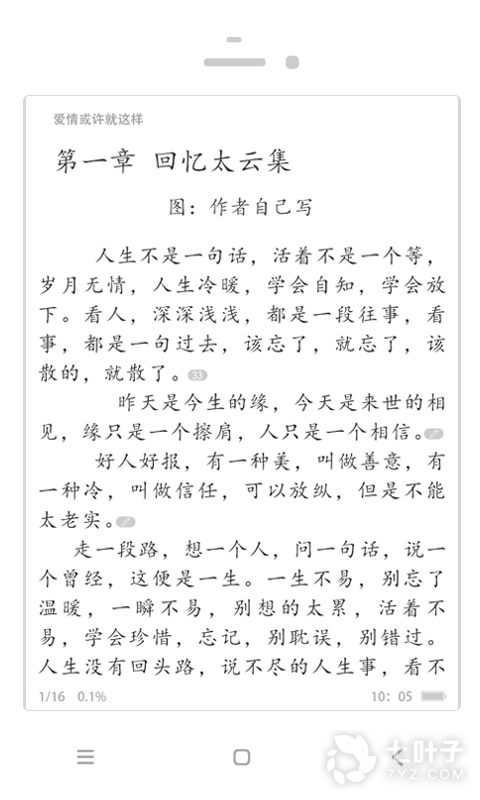 爱情或许就这样
第一章 回忆太云集
图：作者自己写
人生不是一句话，活着不是一个等，
岁月无情，人生冷暖，学会自知，学会放
下。看人，深深浅浅，都是一段往事，看
事，都是一句过去，该忘了，就忘了，该
散的，就散了。33
昨天是今生的缘，今天是来世的相
见，缘只是一个擦肩，人只是一个相信。
好人好报，有一种美，叫做善意，有
一种冷，叫做信任，可以放纵，但是不能
太老实。
走一段路，想一个人，问一句话，说一
个曾经，这便是一生。一生不易，别忘了
温暖，一瞬不易，别想的太累，活着不
易，学会珍惜，忘记，别耽误，别错过。
人生没有回头路，说不尽的人生事，看不
1/16 0.1% 10：05
七叶子
7YZ.COM